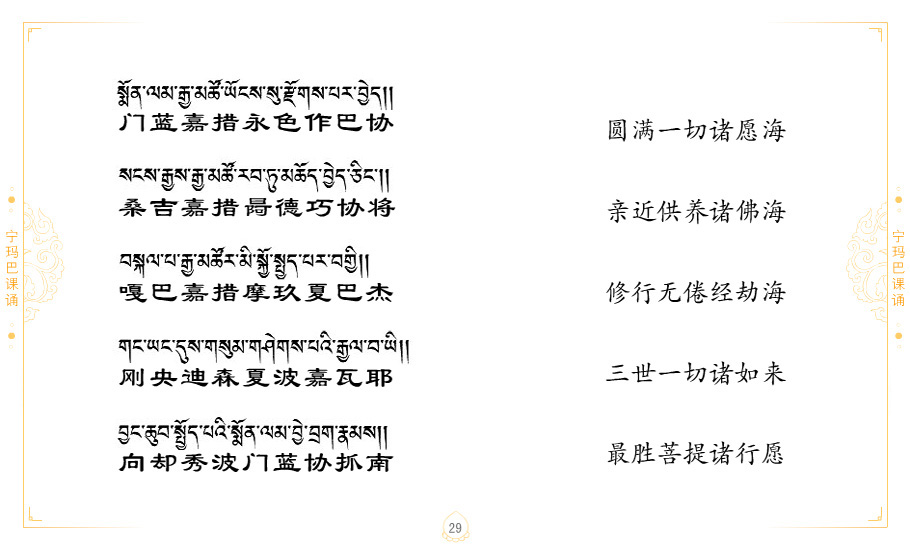 སྨོན་ལམ་རྒྱ་མཚོ་ཡོངས་སུ་རྫོགས་པར་བྱེད།།
门蓝嘉措永色作巴协
圆满一切诸愿海
སངས་རྒྱས་རྒྱ་མཚོ་རབ་ཏུ་མཆོད་བྱེད་ཅིང་།།
桑吉嘉措晑德巧协将
亲近供养诸佛海
བསྐལ་པ་རྒྱ་མཚོར་མི་སྐྱོ་སྤྱད་པར་བགྱི།།
嘎巴嘉措摩玖夏巴杰
修行无倦经劫海
གང་ཡང་དུས་གསུམ་གཤེགས་པའི་རྒྱལ་བ་ཡི།།
刚央迪森夏波嘉瓦耶
三世一切诸如来
བྱང་ཆུབ་སྤྱོད་པའི་སྨོན་ལམ་བྱེ་བྲག་རྣམས།།
向却秀波门蓝协抓南
最胜菩提诸行愿
宁玛巴课诵
宁玛巴课诵
29